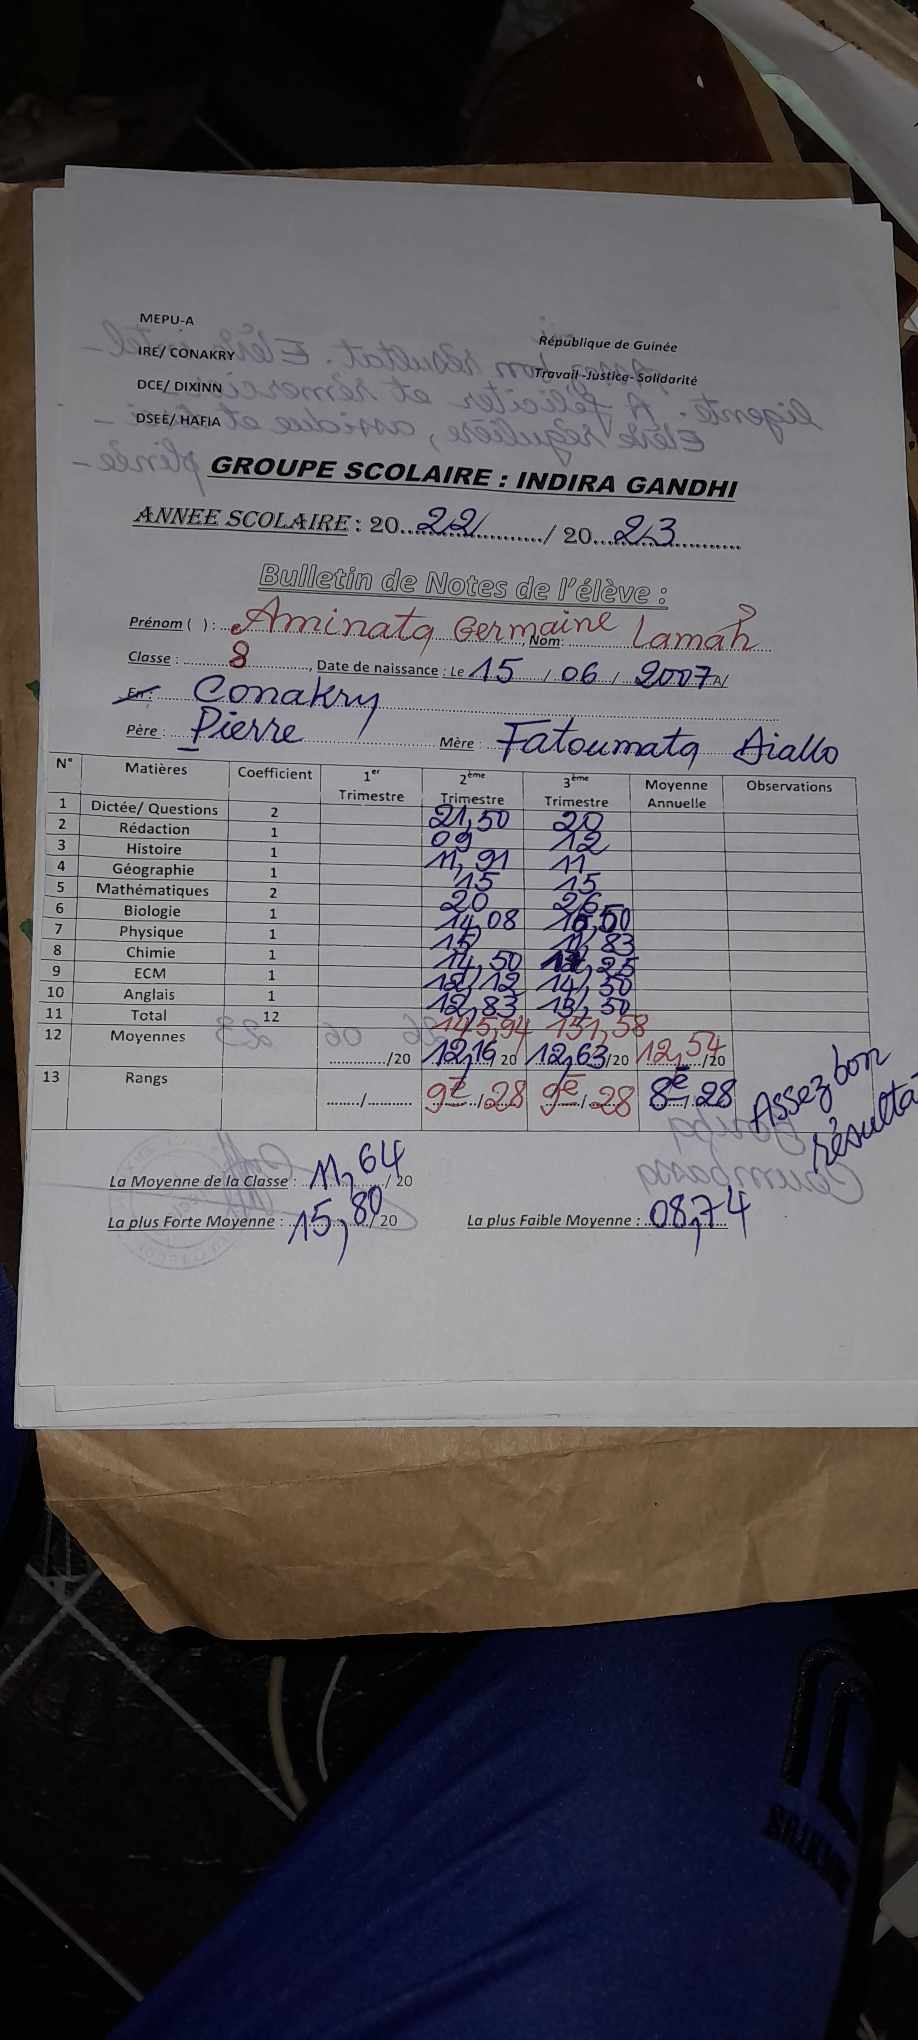 MEPU-A
République de Guinée
IRE/ CONAKRY
Travail -Justice- Solidarité
DCE/ DIXINN
DSEE/ HAFIA
GROUPE SCOLAIRE : INDIRA GANDHI
ANNEE SCOLAIRE : 20...22.../ 20...23...
Bulletin de Notes de l'élève :
Prénom ( ) : Aminata Germaine, Nom: Lamah
Classe : 8, Date de naissance : Le 15 / 06 / 2007 A/
En : Conakry
Père : Pierre Mère : Fatoumata Diallo
N° Matières Coefficient 1er Trimestre 2ème Trimestre 3ème Trimestre Moyenne Annuelle Observations
1 Dictée/ Questions 2 21,50 20
2 Rédaction 1 09 12
3 Histoire 1 11,91 11
4 Géographie 1 15 15
5 Mathématiques 2 20 26
6 Biologie 1 14,08
7 Physique 1 15
8 Chimie 1 14,50
9 ECM 1 12,12 14,50
10 Anglais 1 12,83 13,50
11 Total 12 145,94 151,58
12 Moyennes ............../20 12,16/20 12,63/20 12,54/20
13 Rangs ......../........... 9e/28 9e/28 8e/28
Assez bon
résultat
La Moyenne de la Classe : 11,64/ 20
La plus Forte Moyenne : 15,80/ 20 La plus Faible Moyenne : 08,74